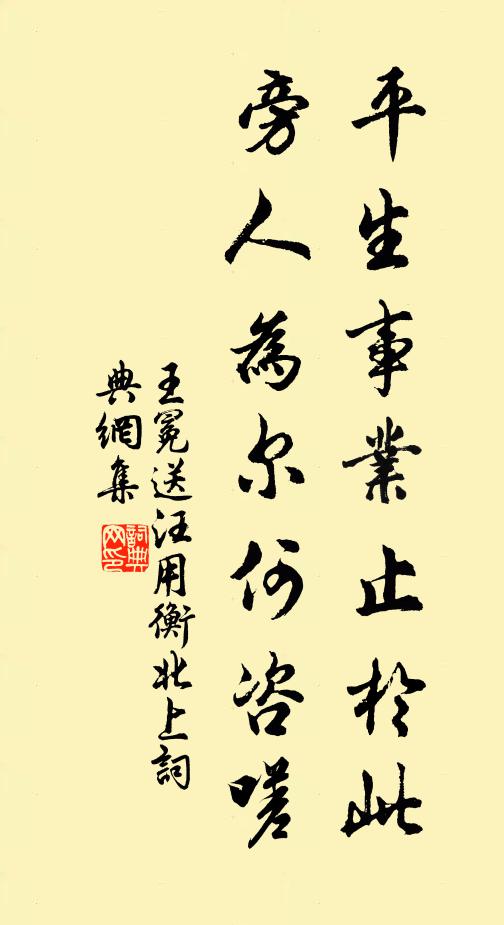 平生事業止於此
旁人為尔何咨嗟
王冕送汪用衡北上詞
典網集
詞典網印